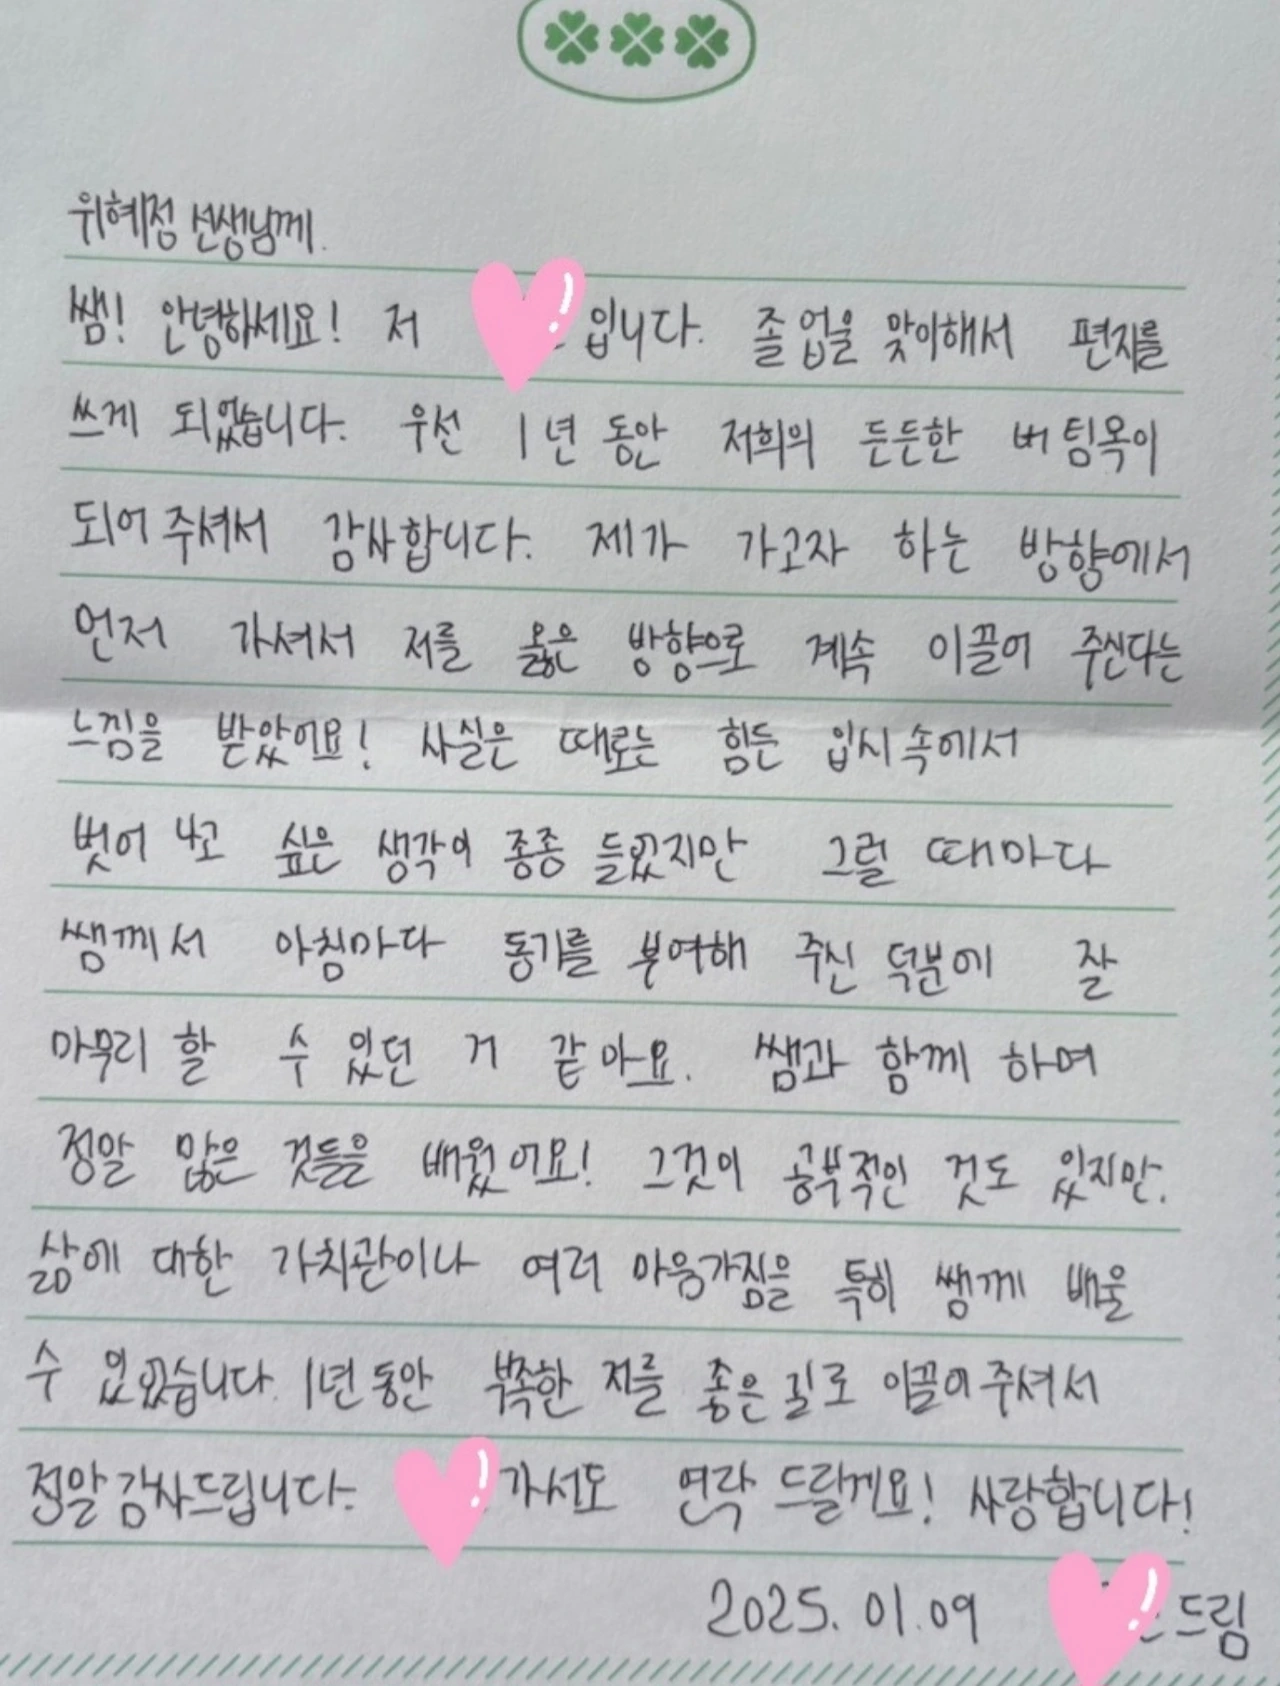 위혜정 선생님께.
쌤! 안녕하세요! 저 입니다. 졸업을 맞이해서 편지를
쓰게 되었습니다. 우선 1년 동안 저희의 든든한 버팀목이
되어 주셔서 감사합니다. 제가 가고자 하는 방향에서
먼저 가셔서 저를 옳은 방향으로 계속 이끌어 주신다는
느낌을 받았어요! 사실은 때로는 힘든 입시 속에서
벗어 나고 싶은 생각이 종종 들었지만 그럴 때마다
쌤께서 아침마다 동기를 부여해 주신 덕분에 잘
마무리 할 수 있던 거 같아요. 쌤과 함께 하며
정말 많은 것들을 배웠어요! 그것이 공부적인 것도 있지만.
삶에 대한 가치관이나 여러 마음가짐을 특히 쌤께 배울
수 있었습니다. 1년 동안 부족한 저를 좋은 길로 이끌어 주셔서
정말 감사드립니다. 가서도 연락 드릴게요! 사랑합니다!
2025. 01. 09 드림